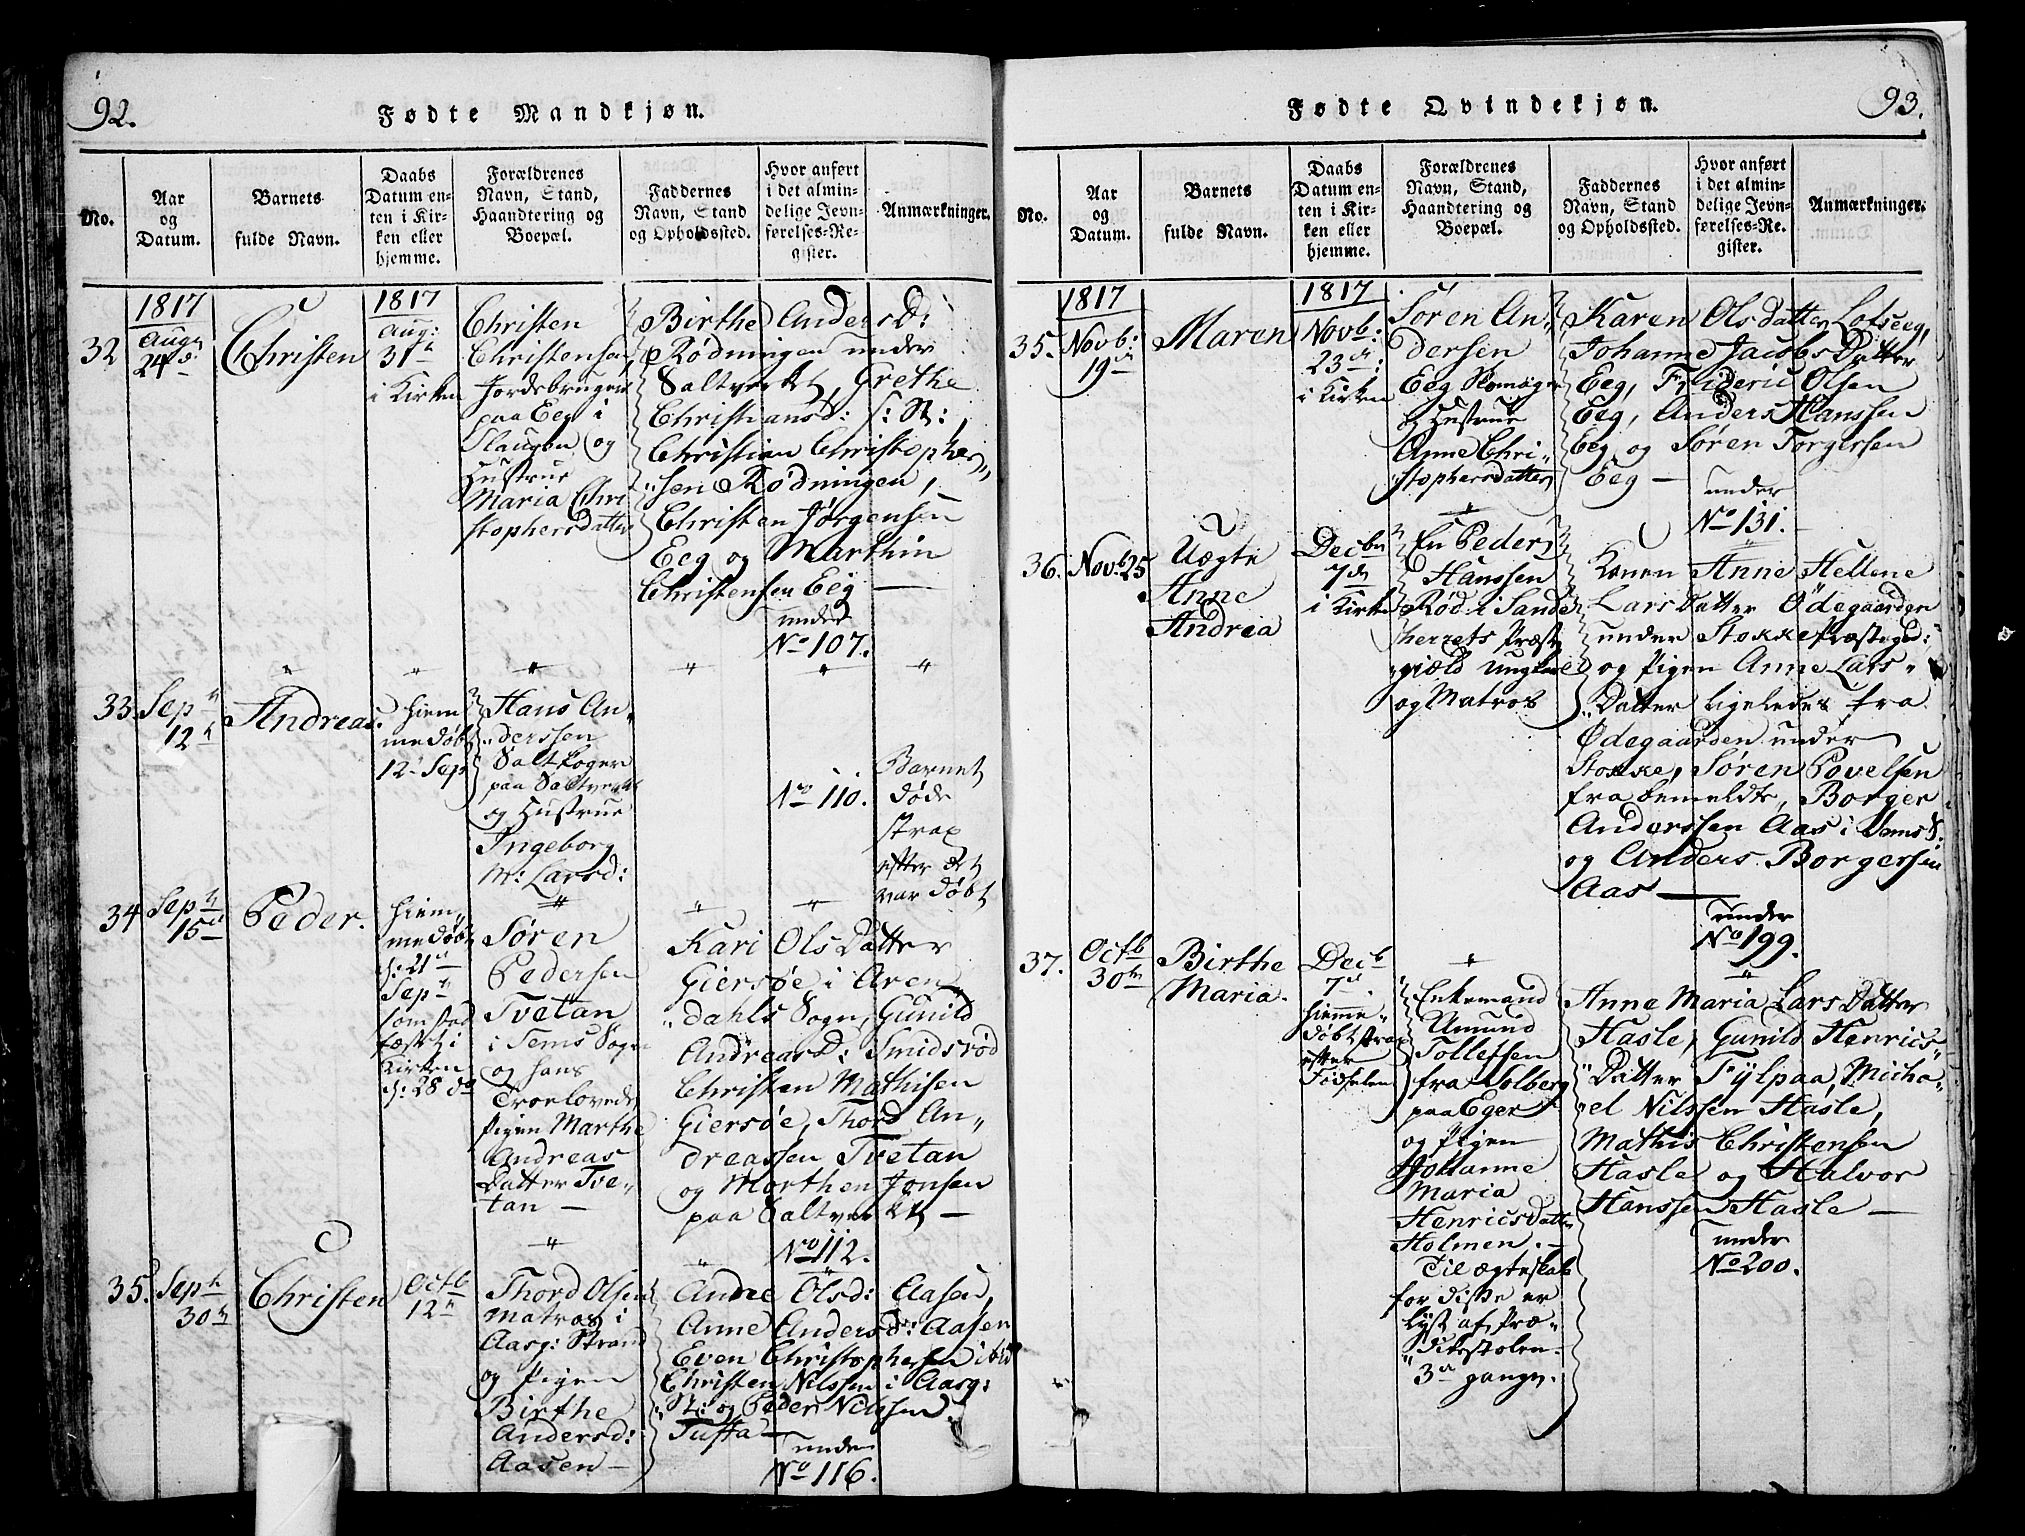 92.
Fødte Mandkjøn.
No.
Aar
og
Datum.
Barnets
fulde Navn.
Daabs
Datum en-
ten i Kir-
ken eller
hjemme.
Forældrenes
Navn, Stand,
Haandtering og
Boepæl.
Faddernes
Navn, Stand
og Opholdssted.
Hvor anført
i det almin-
delige Jevn-
førelses-Re-
gister.
Anmærkninger.
32
1817
Aug
24
Christen
1817
Aug:
31
i Kirken
Christen
Christensen
Jordebruger
paa Eeg i
Slaugen og
Hustrue
Maria Chri
stophersdatter
Birthe Anders D:
Rødningen under
Saltverket, Grethe
Christiansd: s: St:,
Christian Christopher„
„sen Rødningen,
Christen Jørgensen
Eeg og Marthin
Christensen Eeg —
under
No 107.
33
Sep
12
Andreas.
hiem
me døbt
12 Sep
Hans An„
„derssen
Saltkoger
paa Saltverket
og Hustrue
Ingeborg
M: Larsd:
No 110.
Barnet
døde
strax
efter det
var døbt
34
Sep
15
Peder.
hiem„
me døbt
d: 21
Sep
som stad
fæstet i
Kirken
d: 28 do
Søren
Pedersen
Tvetan
i Sems Sogn
og hans
Troelovede
Pigen Marthe
Andreas
Datter Tve„
tan —
Kari Ols Datter
Giersøe i Aren„
„dahls Sogn, Gunild
Andreas D: Smidsrød
Christen Mathisen
Giersøe, Thord An„
dreassen Tvetan
og Morthen Jonsen
paa Saltverket —
No 112.
35.
Sep
30
Christen
Octb
12
Thord Olsen
Matros i
Aasg: Strand
og Pigen
Birthe
Andersd:
Aasen —
Andre Olsd: Aasen,
Anne Andersd: Aasen
Even Christophersen ibid
Christen Nilssen i Aasg:
St: og Peder Nilssen
Tufta —
under
No 116.
93.
Fødte Qvindekjøn.
No.
Aar
og
Datum.
Barnets
fulde Navn.
Daabs
Datum en-
ten i Kir-
ken eller
hjemme.
Forældrenes
Navn, Stand,
Haandtering og
Boepæl.
Faddernes
Navn, Stand
og Opholdssted.
Hvor anført
i det almin-
delige Jevn-
førelses-Re-
gister.
Anmærkninger.
35.
1817
Novb:
19
Maren
1817
Novb:
23
i Kirken
Søren An„
dersen
Eeg Skomager
& Hustrue
Anne Chri„
stophersdatter
Karen Olsdatter Lofseeg,
Johanne Jacobs Datter
Eeg, Frideric Olsen
Eeg, Anders Hanssen
Eeg og Søren Torgersen
Eeg —
under
No 131.
36.
Novb 25
Uægte
Anne
Andrea
Decbr
7
i Kirken
En Peder
Hanssen
Rød i Sande
herrets Præste
gjæld Ungkarl
og Matros
Konen Anne Hellene
Lars Datter Ødegaarden
under Stokke Præstegd:
og Pigen Anne Lars„
„Datter ligeledes fra
Ødegaarden under
Stokke, Søren Povelsen
fra bemeldte, Borger
Anderssen Aas i Sems S.
og Anders Borgersen
Aas —
under
No 199.
37.
Octb
30
Birthe
Maria.
Decb
7
hieme„
døbt strax
efter
Fødselen
Enkemand
Amund
Tollefsen
fra Solberg
paa Eger
og Pigen
Johanne
Maria
Henricsdatter
Holmen. —
Til ægteskab
for disse er
lyst af Præ„
„dikestolen
3 gange.
Anne Maria Lars Datter
Hasle, Gunild Henrics„
„Datter Fÿlpaa, Micha„
„el Nilssen Hasle,
Mathis Christensen
Hasle og Halvor
Hanssen Hasle —
under
No 200.